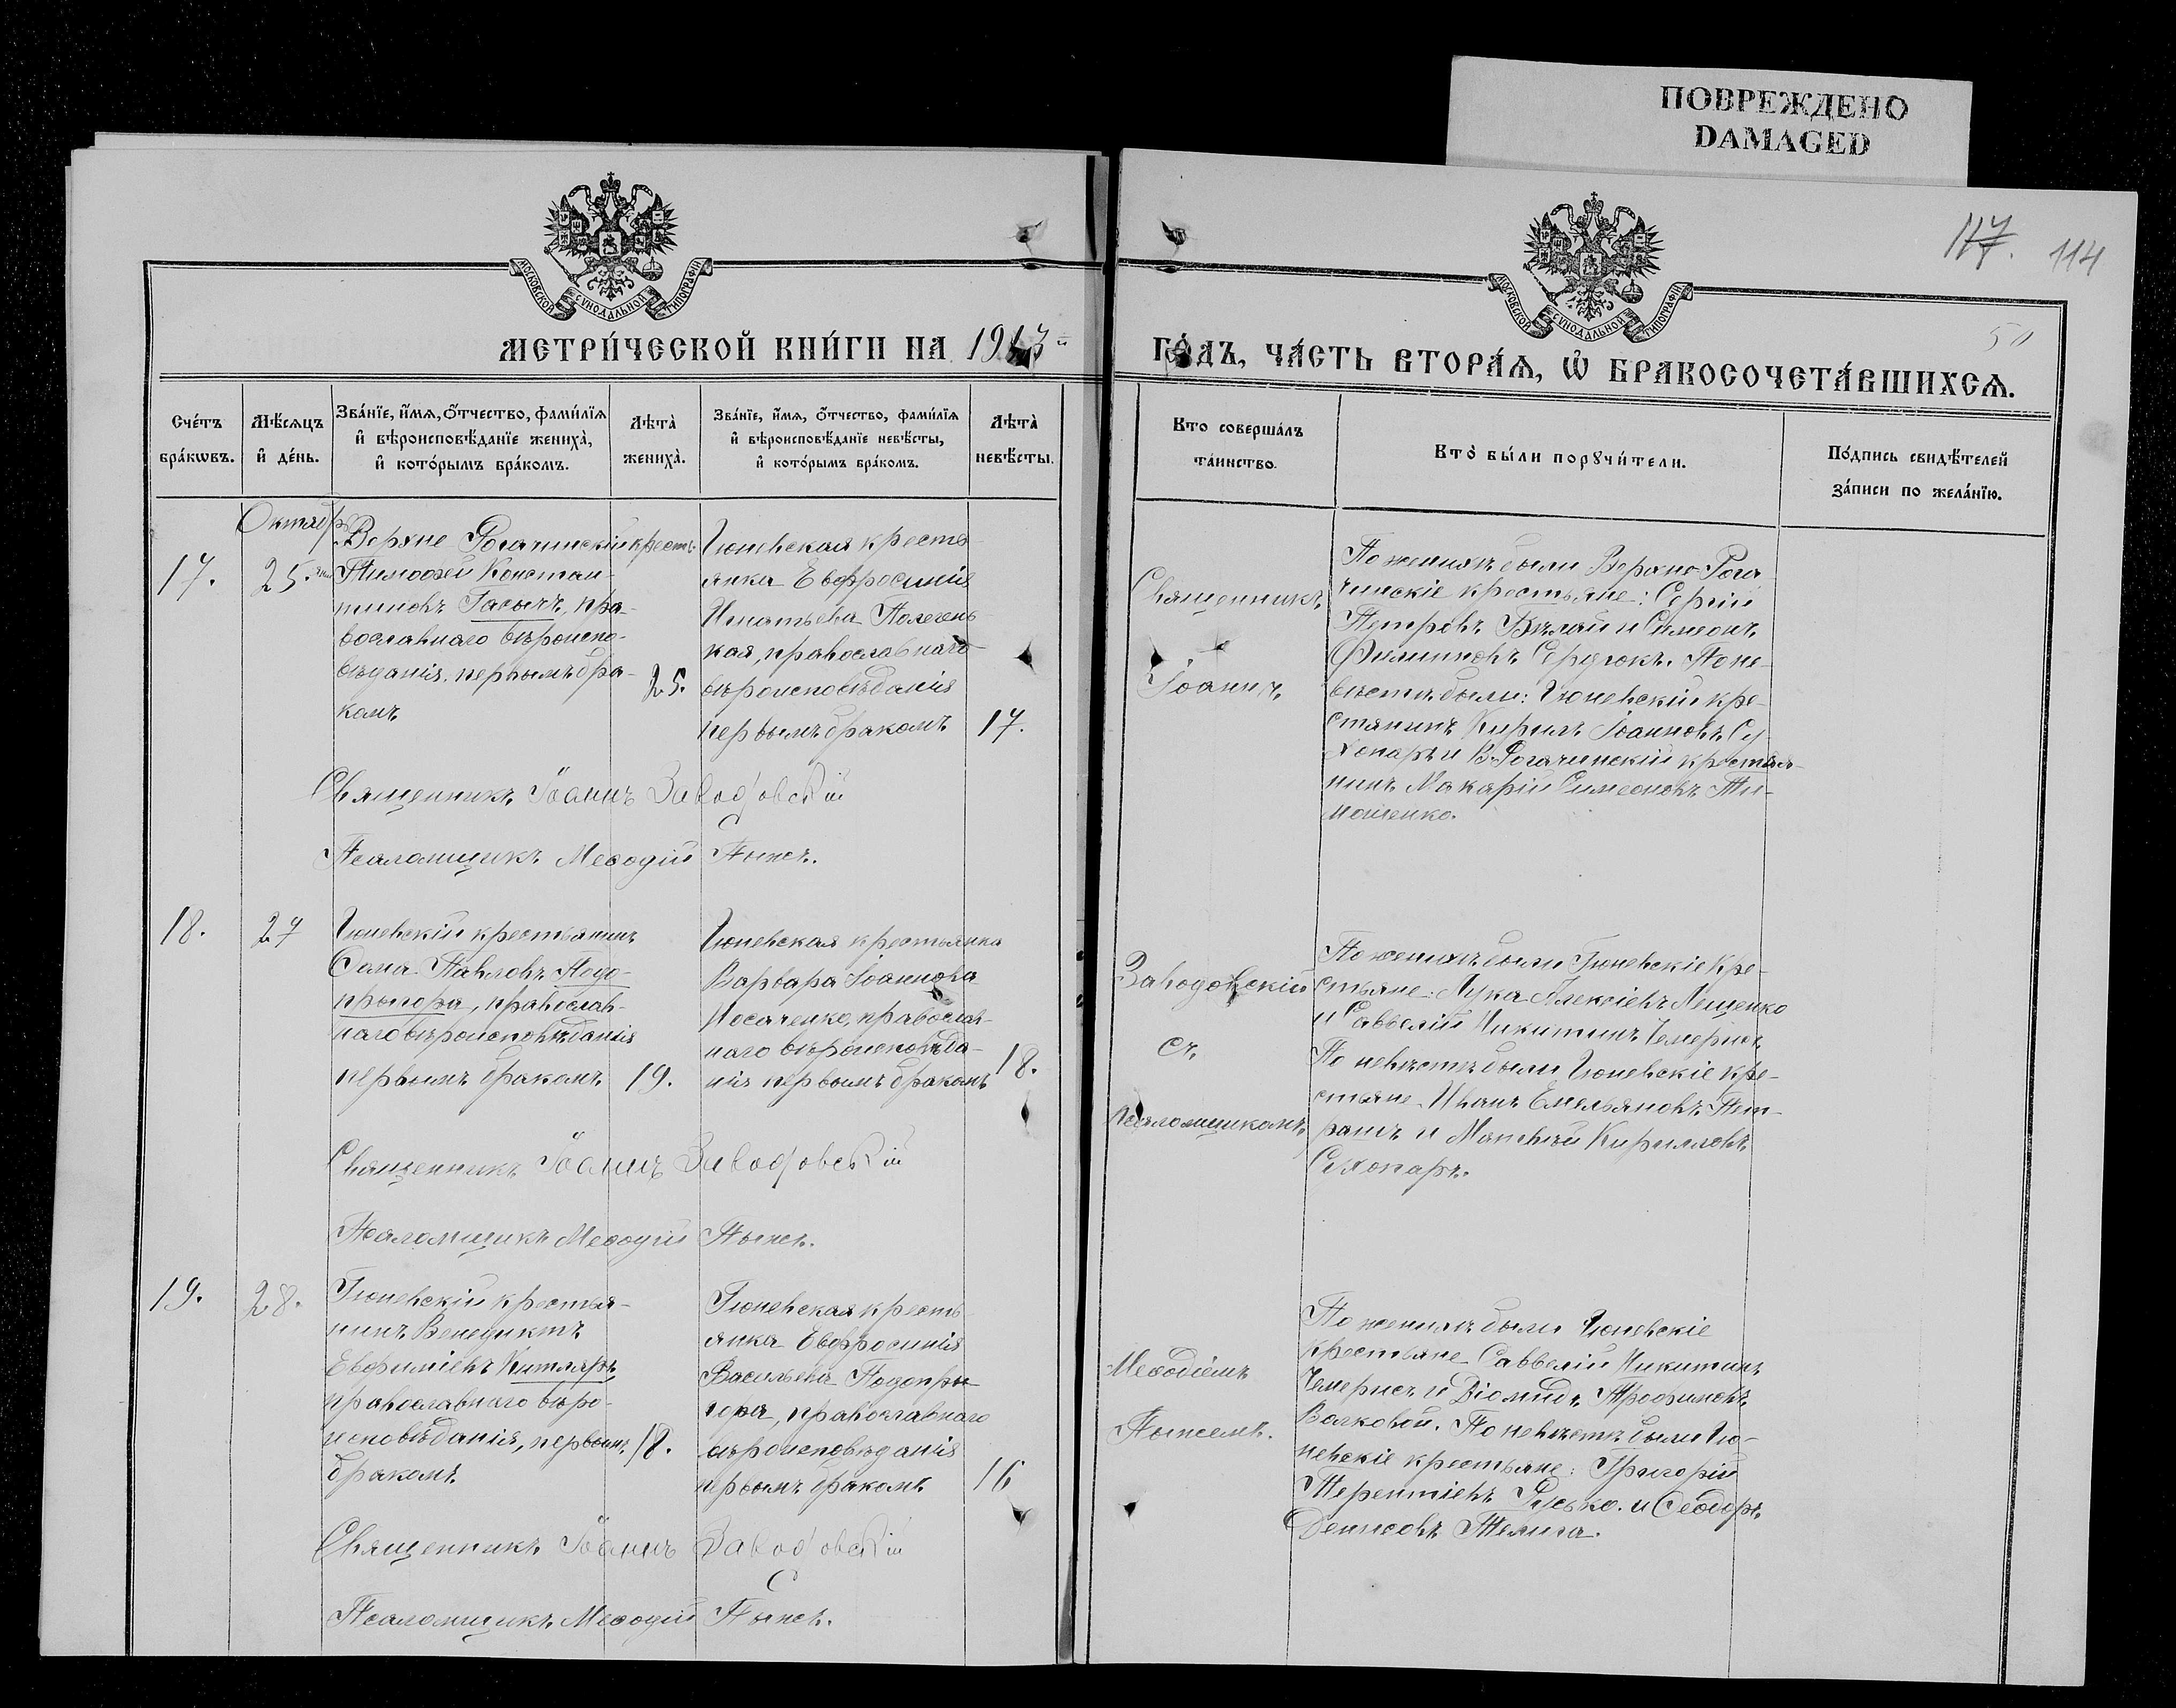 ПОВРЕЖДЕНО
DAMAGED
117. 114
50
МОСКОВСКОЙ СѴНОДАЛЬНОЙ ТИПОГРАФІИ
МОСКОВСКОЙ СѴНОДАЛЬНОЙ ТИПОГРАФІИ
МЕТРИ́ЧЕСКОЙ КНИ́ГИ НА 1913й
ГО́ДЪ, ЧА́СТЬ ВТОРА́Ѧ, Ѡ҆ БРАКОСОЧЕТА́ВШИХСѦ.
Сче́тъ бра́кѡвъ.
Мѣ́сѧцъ и҆ де́нь.
Зва́нїе, и҆́мѧ, ѻ҆́тчество, фами́лїѧ
и҆ вѣроисповѣ́данїе жениха̀,
и҆ кото́рымъ бра́комъ.
Лѣ́та̀ жениха̀.
Зва́нїе, и҆́мѧ, ѻ҆́тчество, фами́лїѧ
и҆ вѣроисповѣ́данїе невѣ́сты,
и҆ кото́рымъ бра́комъ.
Лѣ́та̀ невѣ́сты.
Кто соверша́лъ
та́инство.
Кто̀ бы́ли порꙋчи́тели.
По́дпись свидѣ́телей
за́писи по жела́нїю.
Октябр
17.
25.
Верхне Рогачинскій кресть-
янин Тимоѳей Констан-
тиновъ Гасычъ, пра-
вославнаго вѣроиспо-
вѣданія, первымъ бра-
комъ
25.
Гюневская кресть-
янка Евфросинія
Игнатьева Полегень
кая, православнаго
вѣроисповѣданія
первымъ бракомъ
17.
Священникъ
Іоаннъ
По женихѣ были Верхно-Рога
чинскіе крестьяне: Сергій
Петровъ Бѣлай и Симеонъ
Филиповъ Сердюкъ. По не-
вѣстѣ были: Гюневскій кре-
стянинъ Кирилъ Іоанновъ Су
хопаръ и В-Рогачинскій крестья-
нинъ Макарій Симеоновъ Ти-
мошенко.
Священникъ Іоаннъ Заводовскій
Псаломщикъ Меѳодій Пыжъ.
18.
27
Гюневскій крестьянинъ
Ѳома Павловъ Подо-
пригора, православ-
наго вѣроисповѣданія
первымъ бракомъ
19.
Гюневская крестьянка
Варвара Іоаннова
Носаченко, православ-
наго вѣроисповѣда-
нія первымъ бракомъ
18.
Заводовскій
съ
псаломщикомъ
По женихѣ были Гюневскіе кре-
стьяне: Лука Алексіевъ Лещенко
и Саввелій Никитинъ Чемерисъ
По невѣстѣ были Гюневскіе кре-
стьяне Иванъ Емельяновъ Пет-
рашъ и Матвѣй Кирилловъ
Сухопаръ.
Священникъ Іоаннъ Заводовскій
Псаломщикъ Меѳодій Пыжъ.
19.
28.
Гюневскій крестья-
нинъ Венедиктъ
Евфиміевъ Китляръ,
православнаго вѣро-
исповѣданія, первымъ
бракомъ
18.
Гюневская кресть-
янка Евфросинія
Васильева Подопры-
гора, православнаго
вѣроисповѣданія
первымъ бракомъ
16
Меѳодіемъ
Пыжемъ.
По женихѣ были Гюневскіе
крестьяне Саввелій Никитинъ
Чемерисъ и Діомидъ Трофимовъ
Волковой. По невѣстѣ были Гю-
невскіе крестьяне: Григорій
Терентіевъ Русько. и Ѳеодоръ
Денисовъ Телига.
Священникъ Іоаннъ Заводовскій
Псаломщикъ Меѳодій Пыжъ.